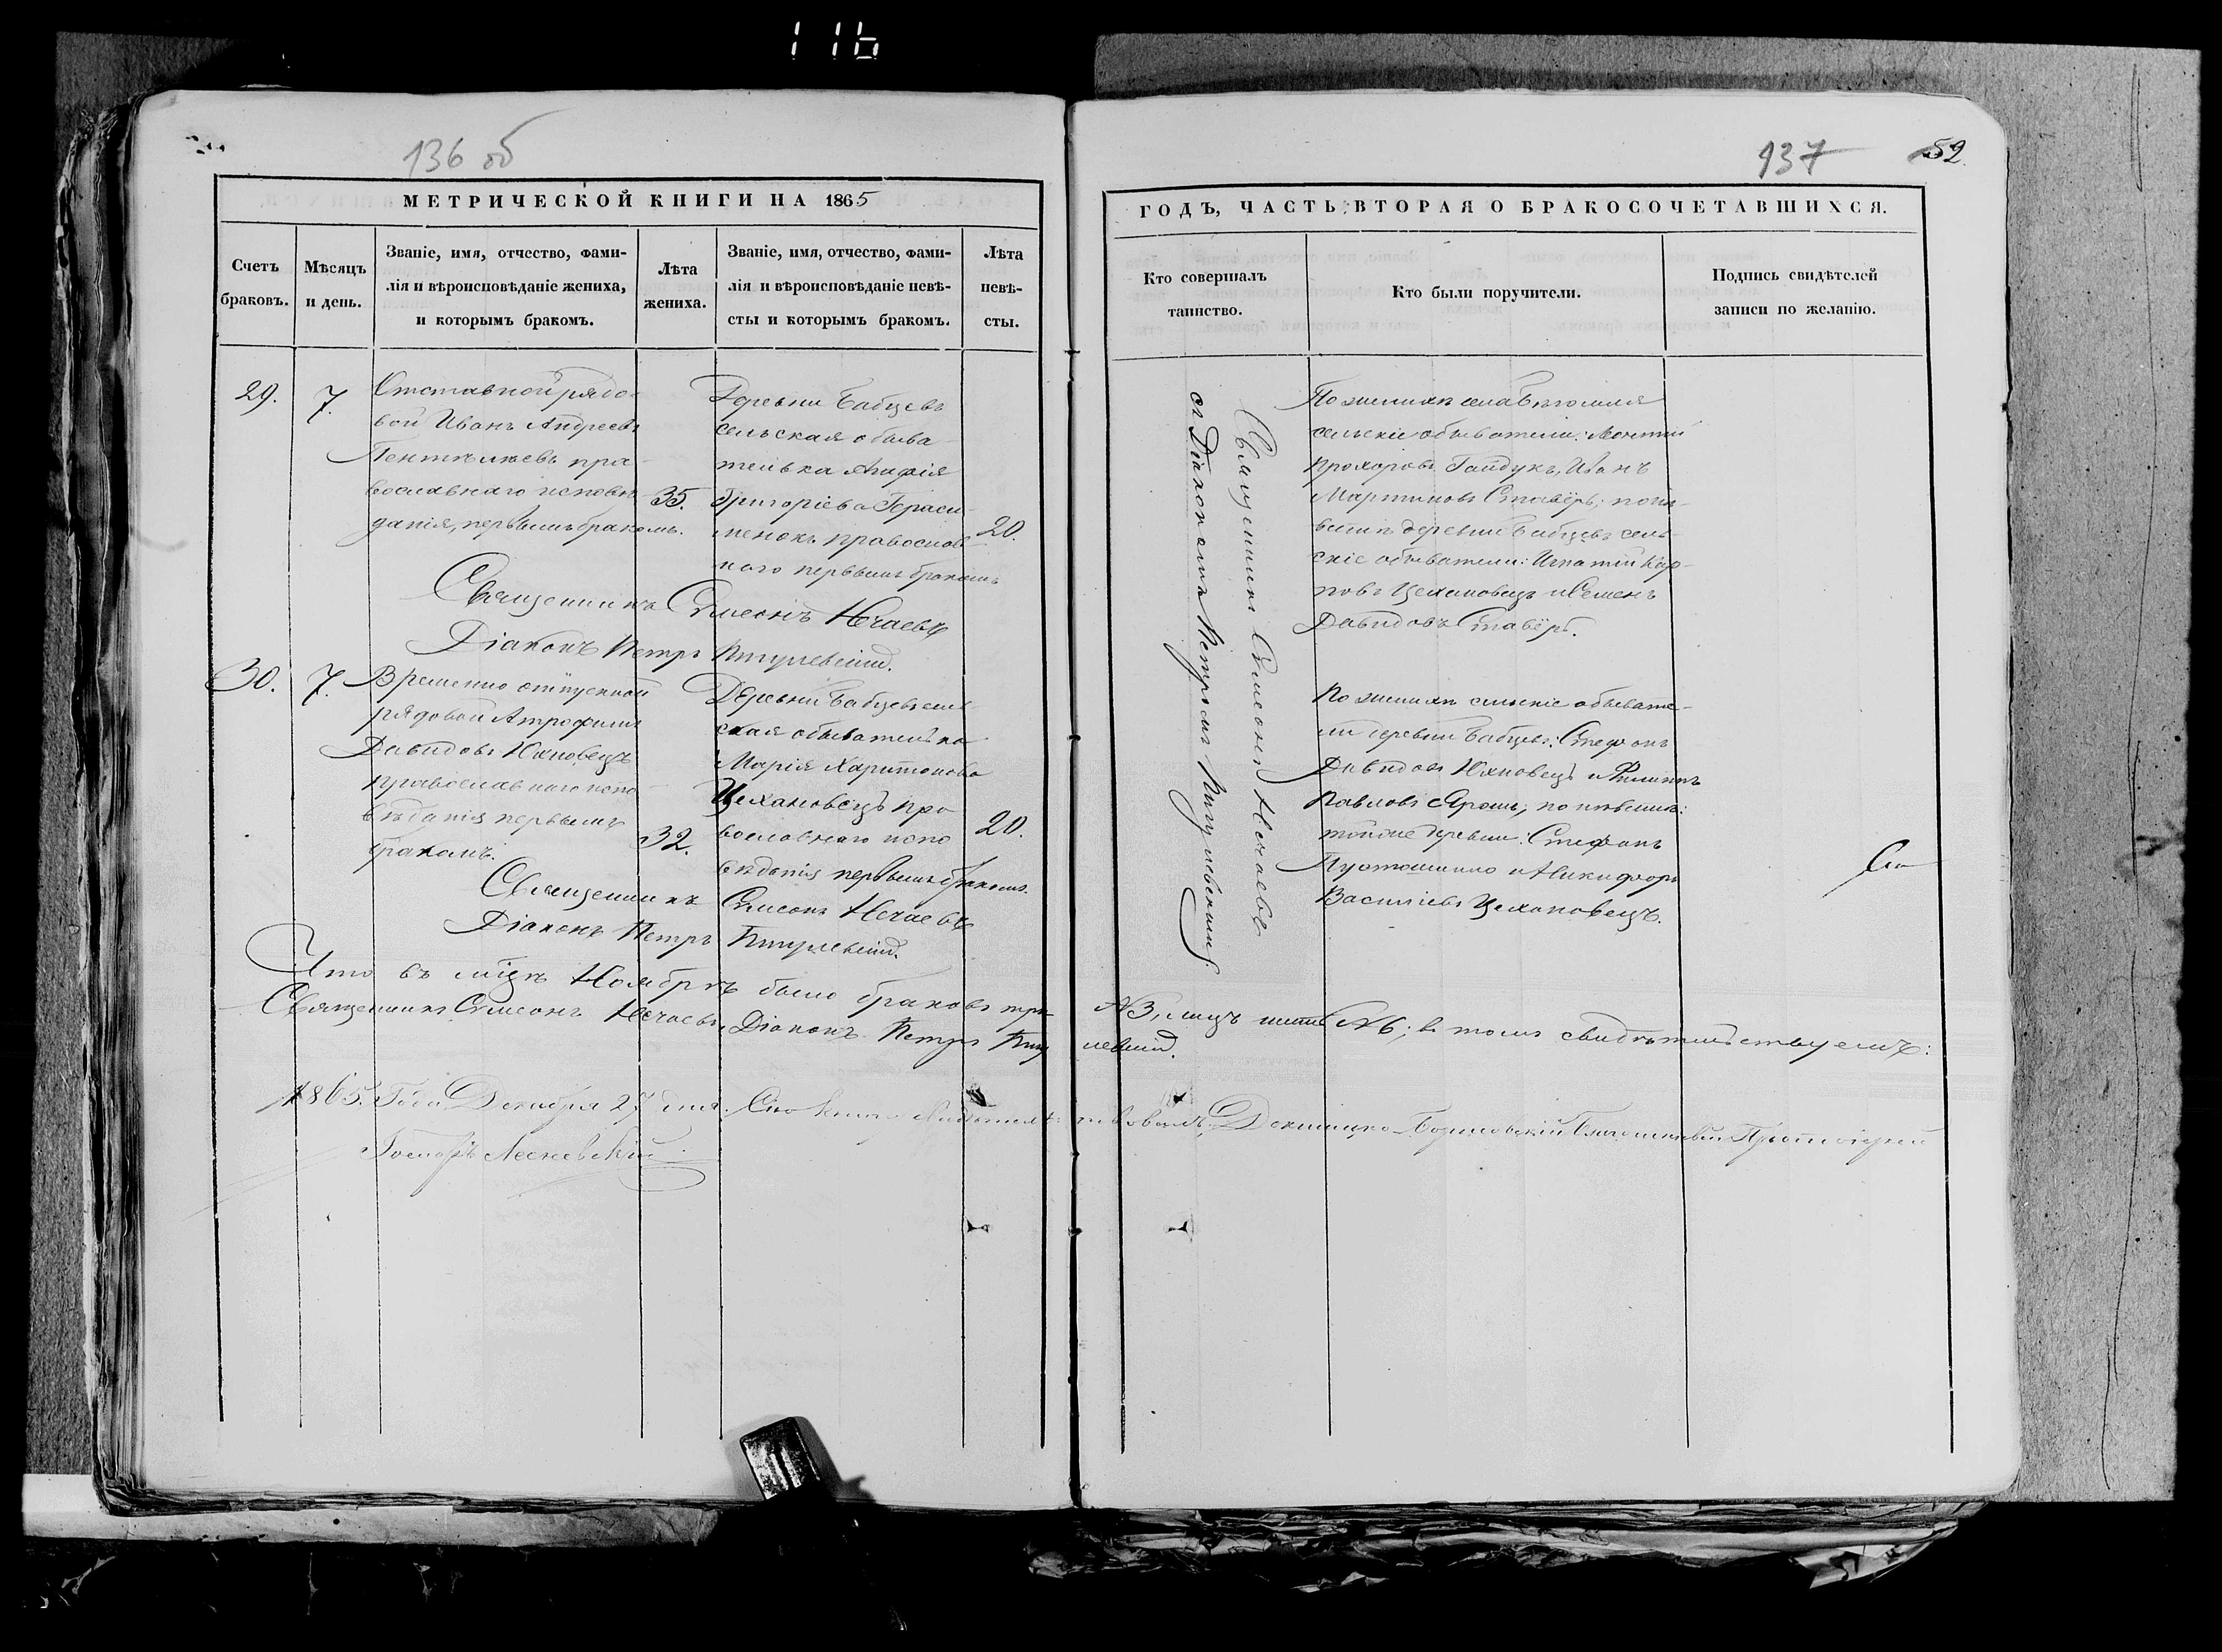 116
136 об
МЕТРИЧЕСКОЙ КНИГИ НА 1865
Счетъ браковъ.
Мѣсяцъ и день.
Званіе, имя, отчество, фами-
лія и вѣроисповѣданіе жениха,
и которымъ бракомъ.
Лѣта жениха.
Званіе, имя, отчество, фами-
лія и вѣроисповѣданіе невѣ-
сты и которымъ бракомъ.
Лѣта невѣ-
сты.
29.
7.
Отставной рядо-
вой Иванъ Андреевъ
православнаго исповѣ-
данія, первымъ бракомъ.
35.
Деревни Бабцевъ
сельская обыва-
телька Агафія
Григоріева Гераси-
менокъ православ-
наго первымъ бракомъ
20.
Священникъ Симеонъ Нечаевъ
Діаконъ Петръ
30.
7.
Временно отпускной
рядовой Атрофимъ
Давидовъ Юхновецъ
православнаго испо-
вѣданія первымъ
бракомъ.
32.
Деревни Бабцевъ сель-
ская обывателька
Марія Харитонова
Цехановецъ пра-
вославнаго испо-
вѣданія первымъ бракомъ.
20.
Священникъ Симеонъ Нечаевъ
Діаконъ Петръ
Что въ мѣсцѣ Ноябрѣ было браковъ три
Священникъ Симеонъ Нечаевъ, Діаконъ Петръ
1865. Года Декабря 27 дня. Сію книгу
137
52
ГОДЪ, ЧАСТЬ ВТОРАЯ О БРАКОСОЧЕТАВШИХСЯ.
Кто совершалъ
таинство.
Кто были поручители.
Подпись свидѣтелей
записи по желанію.
Священникъ Симеонъ Нечаевъ
съ Діакономъ Петромъ
По женихѣ села
сельскіе обыватели:
Прохоровъ Гайдукъ, Иванъ
Мартиновъ Ставёръ; по не-
вѣстѣ деревни Бабцевъ сель-
скіе обыватели: Игнатій Кар-
повъ Цехановецъ и Семенъ
Давидовъ Ставёръ.
По женихѣ сельскіе обывате-
ли деревни Бабцевъ: Стефанъ
Давидовъ Юхновецъ и Филиппъ
Павловъ Ярошъ; по невѣстѣ:
той же деревни: Стефанъ
и Никифоръ
Васильевъ Цехановецъ.
№ 3, лицъ шесть № 6; въ томъ свидѣтельствуемъ:
Докшицко-Борисовскій Благочинный Протоіерей